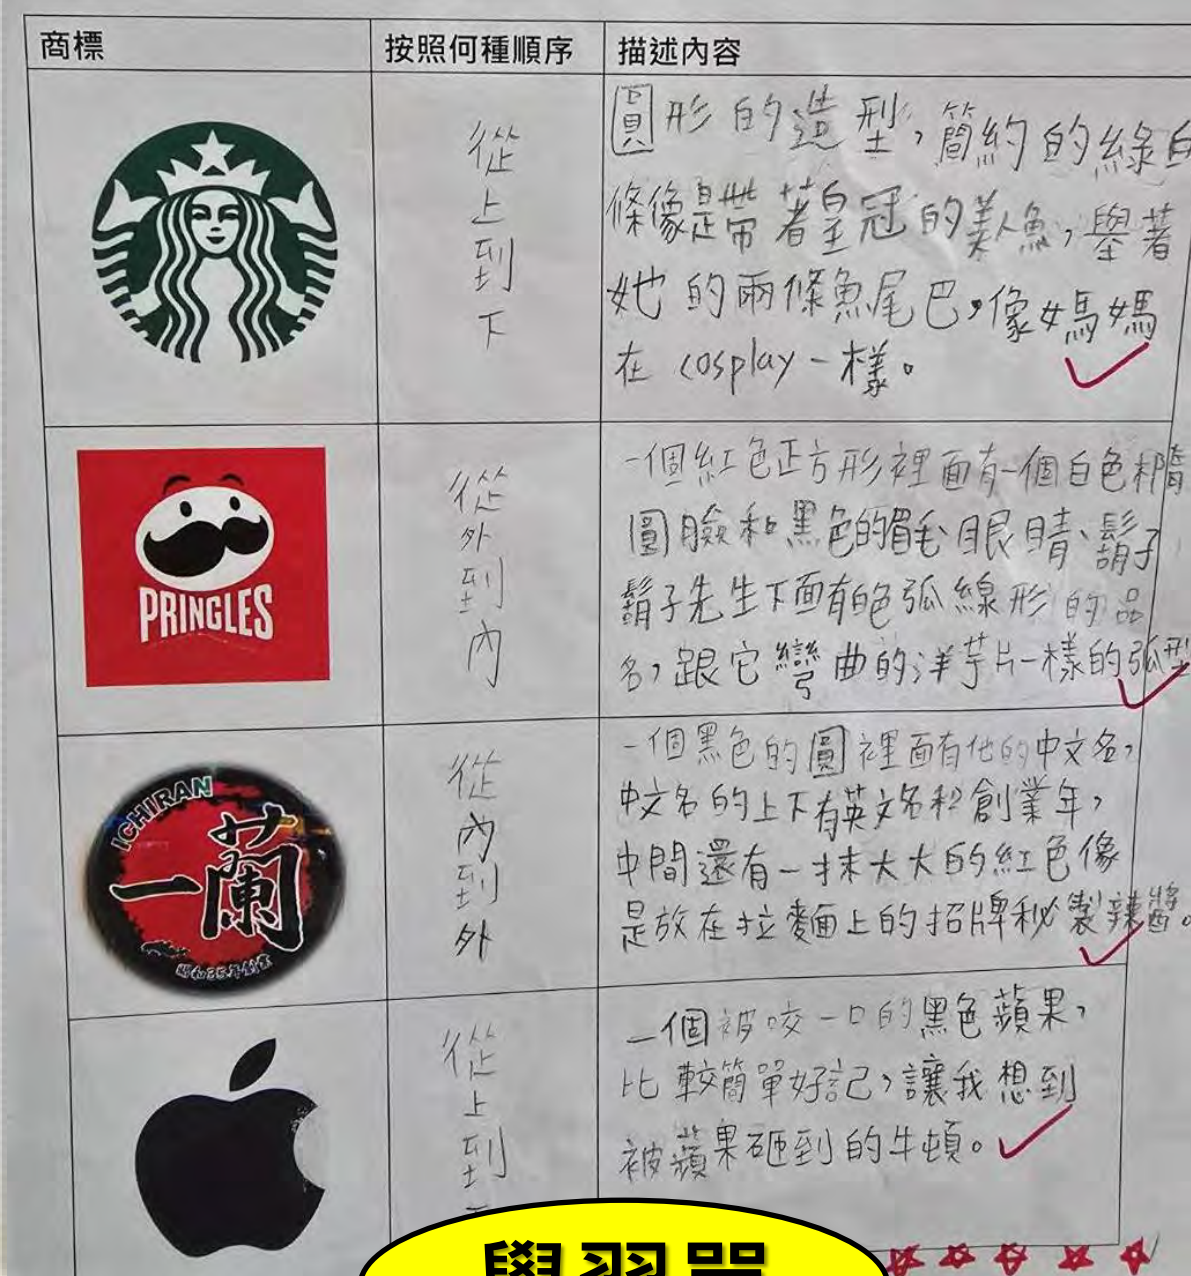 商標
按照何種順序
描述內容
從上到下
圓形的造型，簡約的綠白
條像是帶著皇冠的美人魚，舉著
她的兩條魚尾巴，像媽媽
在cosplay一樣。
PRINGLES
從外到內
一個紅色正方形裡面有一個白色橢
圓臉和黑色的眉毛眼睛、鬍子
鬍子先生下面有白色弧線形的品
名，跟它彎曲的洋芋片一樣的弧型
ICHIRAN
一蘭
昭和35年創業
從內到外
一個黑色的圓裡面有他的中文名，
中文名的上下有英文名和創業年，
中間還有一抹大大的紅色像
是放在拉麵上的招牌秘製辣醬。
從上到
一個被咬一口的黑色蘋果，
比較簡單好記，讓我想到
被蘋果砸到的牛頓。
學習單